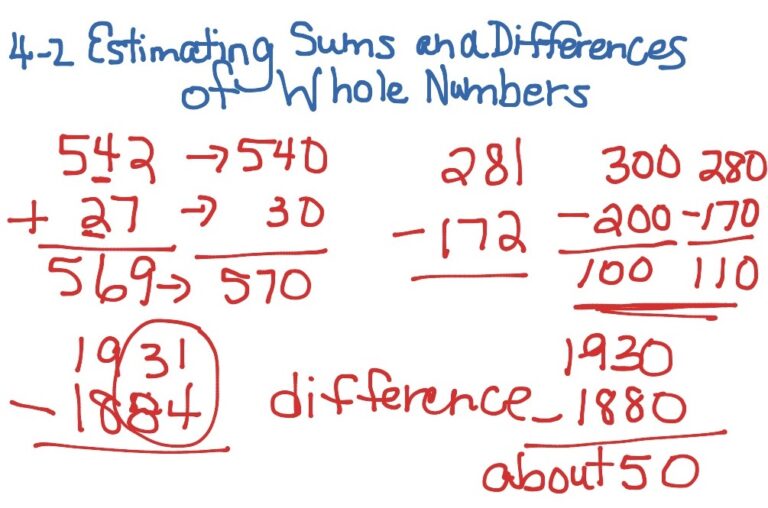 4-2 Estimating Sums and Differences
of Whole Numbers
542 → 540
+ 27 → 30
569 → 570
281
- 172
300 280
- 200 - 170
100 110
1931
- 1884
difference
1930
- 1880
about 50